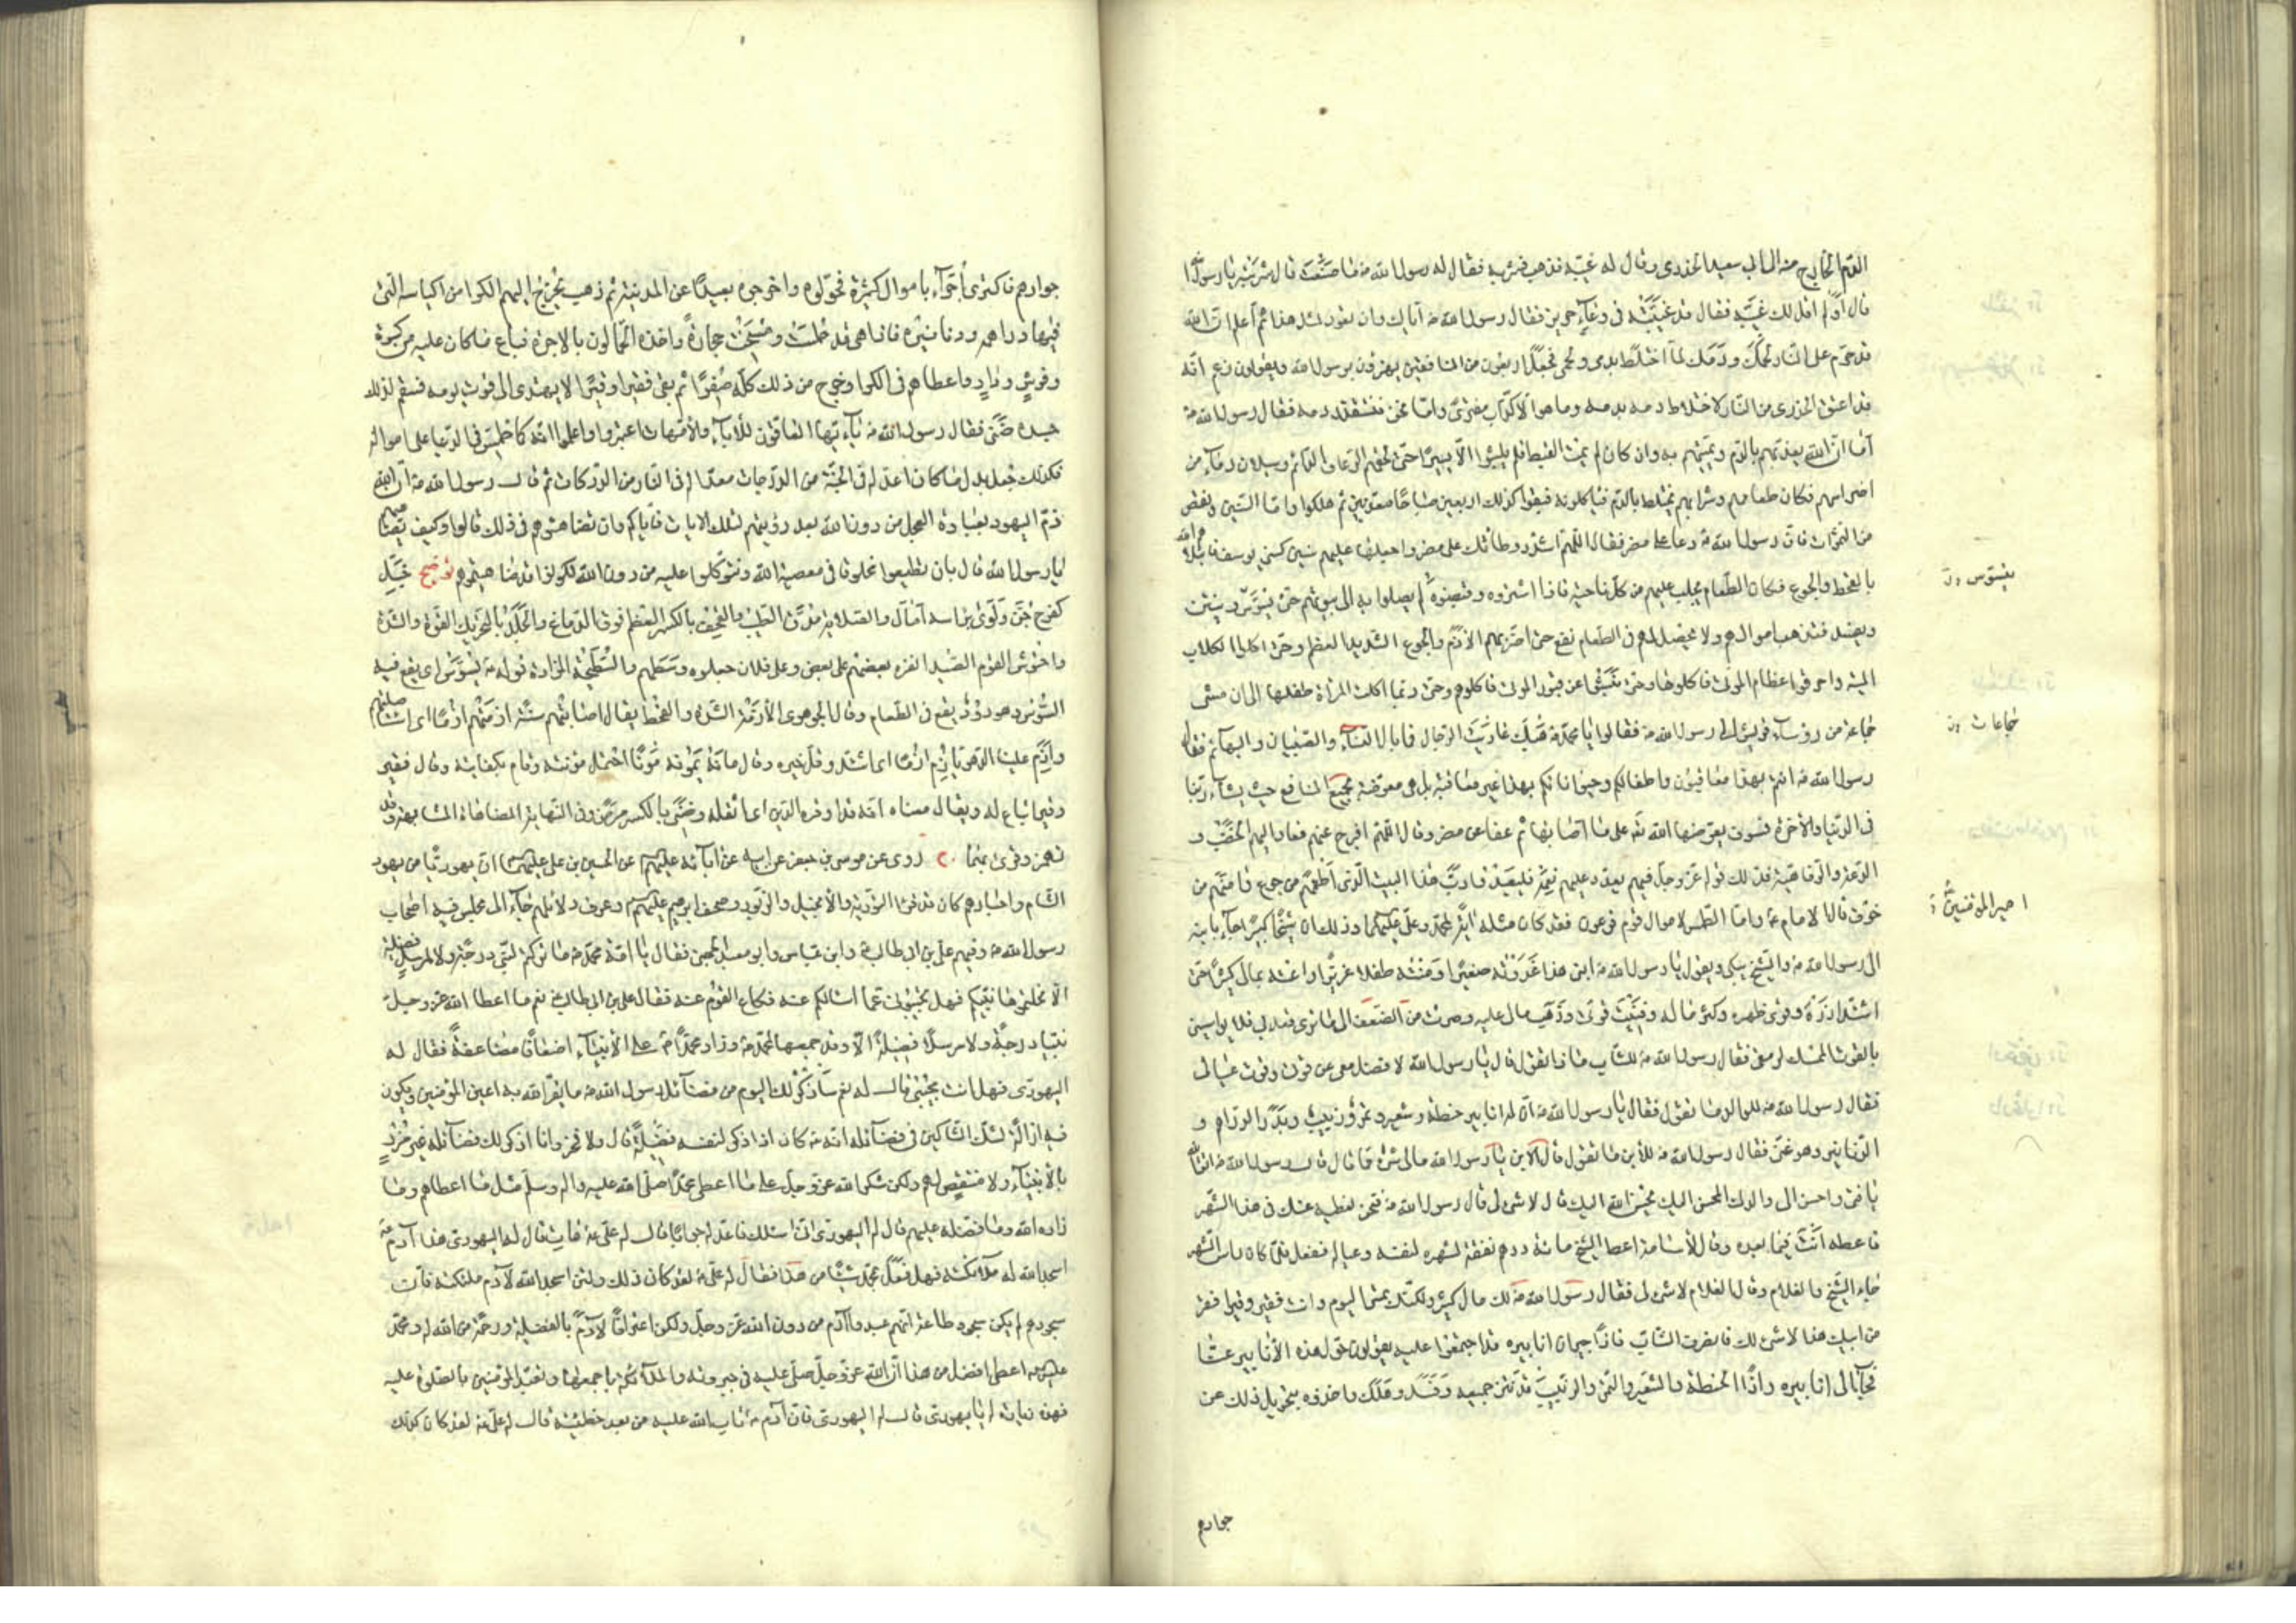 الدم الخارج منه الى ابي سعيد الخدري وقال له غيبه فذهب فشربه فقال له رسول الله ص ما صنعت قال شربته يا رسول الله
قال أولم اقل لك غيبه فقال قد غيبته في وعاء حريز فقال رسول الله ص اياك وان تعود لمثل هذا ثم اعلم ان الله
قد حرم على النار لحمك ودمك لما اختلط بدمي ولحمي فجعل اربعون من المنافقين يهزؤن برسول الله ويقولون زعم انه
قد اعتق الخدري من النار لاختلاط دمه بدمه وما هو الا كذاب مفتري واما نحن فنستقذر دمه فقال رسول الله ص
اما ان الله يعذبهم بالدم ويميتهم به وان كان لم يمت القبط فلم يلبثوا الا يسيرا حتى لحقهم الرعاف الدائم وسيلان دماء من
اضراسهم فكان طعامهم وشرابهم يختلط بالدم فيأكلونه فبقوا كذلك اربعين صباحا معذبين ثم هلكوا واما السنين ونقص
من الثمرات فان رسول الله ص دعا على مضر فقال اللهم اشدد وطأتك على مضر واجعلها عليهم سنين كسني يوسف فابتلاهم الله
بالقحط والجوع فكان الطعام يجلب عليهم من كل ناحية فاذا اشتروه وقبضوه لم يصلوا به الى بيوتهم حتى يتسوس وينتن
ويفسد فتذهب اموالهم ولا يحصل لهم في الطعام نفع حتى اضر بهم الازم والجوع الشديد العظيم وحتى اكلوا الكلاب
الميتة واحرقوا عظام الموتى فاكلوها وحتى نبشوا عن قبور الموتى فاكلوهم وحتى ربما اكلت المرأة طفلها الى ان مشى
جماعة من رؤساء قريش الى رسول الله ص فقالوا يا محمد ص هبك عاديت الرجال فما بال النساء والصبيان والبهائم فقال
رسول الله ص انتم بهذا معاقبون واطفالكم وحيواناتكم بهذا غير معاقبة بل هي معوضة بجميع المنافع حيث يشاء ربنا
في الدنيا والآخرة فسوف يعوضها الله تع على ما اصابها ثم عفا عن مضر وقال اللهم افرج عنهم فعاد اليهم الخصب و
الدعة والرفاهية فذلك قوله عز وجل فيهم يعدد عليهم نعمه فليعبدوا رب هذا البيت الذي أطعمهم من جوع وآمنهم من
خوف قال الامام ع واما الطمس لاموال قوم فرعون فقد كان مثله آية لمحمد وعلي عليهما وذلك ان شيخا كبيرا جاء بابنه
الى رسول الله ص والشيخ يبكي ويقول يا رسول الله ص ابني هذا غذوته صغيرا وصنته طفلا عزيزا واعنته بمالي كثيرا حتى
اشتد ازره وقوي ظهره وكثر ماله وفنيت قوتي وذهب مالي عليه وصرت من الضعف الى ما ترى قعد بي فلا يواسيني
بالقوت الممسك لرمقي فقال رسول الله ص للشاب ماذا تقول قال يا رسول الله لا فضل معي عن قوتي وقوت عيالي
فقال رسول الله ص للوالد ما تقول فقال يا رسول الله ص ان له انابير حنطة وشعير وتمر وزبيب وبدر الدراهم و
الدنانير وهو غني فقال رسول الله ص للابن ما تقول قال الابن يا رسول الله مالي شئ مما قال قال رسول الله ص اتق الله
يا فتى واحسن الى والدك المحسن اليك يحسن الله اليك قال لا شئ لي قال رسول الله ص فنحن نعطيه عنك في هذا الشهر
فاعطه انت فيما بعده وقال لأسامة اعط الشيخ مائة درهم نفقة لشهره لنفسه وعياله ففعل فلما كان راس الشهر
جاء الشيخ والغلام وقال الغلام لا شئ لي فقال رسول الله ص لك مال كثير ولكنك تمسي اليوم وانت فقير وقير افقر
من ابيك هذا لا شئ لك فانصرف الشاب فاذا جيران انابيره قد اجتمعوا عليه يقولون حول هذه الأنابير عنا
فجاء الى انابيره واذا الحنطة والشعير والتمر والزبيب قد نتن جميعه وفسد وهلك واخذوه بتحويل ذلك عن
يتسوس
جماعات
امير المؤمنين
جوارهم
جوارهم فاكترى أجراء باموال كثيرة فحولوه واخرجوه بعيدا عن المدينة ثم ذهب يخرج اليهم الكرا من اكياسه التي
فيها دراهمه ودنانيره فاذا هي قد طمست ومسخت حجارة واخذه الحمالون بالاجرة فباع ما كان عليه من كسوة
وفرش ودار واعطاهم في الكرا وخرج من ذلك كله صفرا ثم بقي فقيرا وقيرا لا يهتدي الى قوت يومه فسقم لذلك
جسده ضنى فقال رسول الله ص يا ايها العاقون للآباء والأمهات اعتبروا واعلموا انه كما طمس في الدنيا على امواله
فكذلك جعل بدل ما كان اعد له في الجنة من الدرجات معدا له في النار من الدركات ثم قال رسول الله ص ان الله
ذم اليهود بعبادة العجل من دون الله بعد رؤيتهم لتلك الايات فاياكم وان تضاهئوهم في ذلك قالوا وكيف نضاهيهم
يا رسول الله قال بان تطيعوا مخلوقا في معصية الله وتتوكلوا عليه من دون الله فكونوا قد ضاهيتموهم توضيح خبل
كفرح جن ولوى براسه امال والصلاية مدق الطيب والقحف بالكسر العظم فوق الدماغ والجلد بالتحريك القوة والشدة
واحتوش القوم الصيد انفره بعضهم على بعض وعلى فلان جعلوه وسطهم والسطيحة المزادة قوله ص يتسوس اى يقع فيه
السوس وهو دود يقع في الطعام وقال الجوهري الأزمة الشدة والقحط يقال اصابتهم سنة ازمتهم ازما اى استأصلتهم
وأزم علينا الدهر يأزم ازما اى اشتد وقل خيره وقال مانه يمونه مونا احتمل مؤنته وقام بكفايته وقال فقير
وقير اتباع له ويقال معناه انه قد اوقره الدين اى اثقله وضنى بالكسر مرض وفي النهاية المضاهاة المشابهة وقد
تهمز وقرئ بهما ٢٠ روى عن موسى بن جعفر عن ابيه عن آبائه عليهم عن الحسين بن علي عليهم ان يهوديا من يهود
الشام واحبارهم كان قد قرأ التورية والأنجيل والزبور وصحف ابرهيم عليهم وعرف دلائلهم جاء الى مجلس فيه اصحاب
رسول الله ص وفيهم علي بن ابي طالب ع وابن عباس وابو معبد الجهني فقال يا امة محمد ص ما تركتم لنبي درجة ولا لمرسل فضيلة
الا نحلتموها نبيكم فهل تجيبوني عما اسالكم عنه فكاع القوم عنه فقال علي بن ابي طالب ع نعم ما اعطا الله عز وجل
نبيا درجة ولا مرسلا فضيلة الا وقد جمعها لمحمد ص وزاد محمدا ص على الأنبياء اضعافا مضاعفة فقال له
اليهودي فهل انت مجيبني قال له نعم سأذكر لك اليوم من فضائل رسول الله ص ما يقر الله به اعين المؤمنين ويكون
فيه ازالة لشك الشاكين في فضائله انه ص كان اذا ذكر لنفسه فضيلة قال ولا فخر وانا اذكر لك فضائله غير مزر
بالأنبياء ولا منتقص لهم ولكن شكرا لله عز وجل على ما اعطى محمدا صلى الله عليه واله وسلم مثل ما اعطاهم وما
زاده الله وما فضله عليهم قال له اليهودي اني اسئلك فاعد له جوابا قال له علي ع هات قال له اليهودي هذا آدم ع
اسجد الله له ملائكته فهل فعل بمحمد شيئا من هذا فقال له علي ع لقد كان ذلك ولئن اسجد الله لآدم ملئكته فان
سجودهم لم يكن سجود طاعة انهم عبدوا آدم من دون الله عز وجل ولكن اعترافا لآدم بالفضيلة ورحمة من الله له ومحمد
ص اعطى افضل من هذا ان الله عز وجل صلى عليه في جبروته والملائكة باجمعها وتعبد المؤمنين بالصلوة عليه
فهذه زيادة له يا يهودي قال له اليهودي فان آدم ع تاب الله عليه من بعد خطيئته قال له علي ع لقد كان كذلك